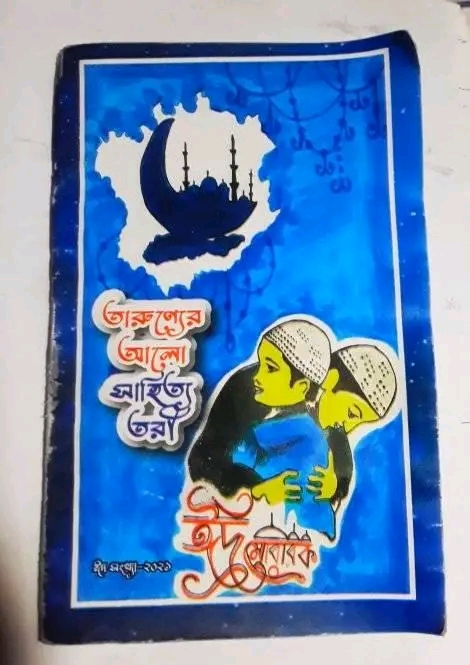 তারুণ্যের
আলো
সাহিত্য
তরী
ঈদ
মোবারক
ঈদ সংখ্যা-২০২১